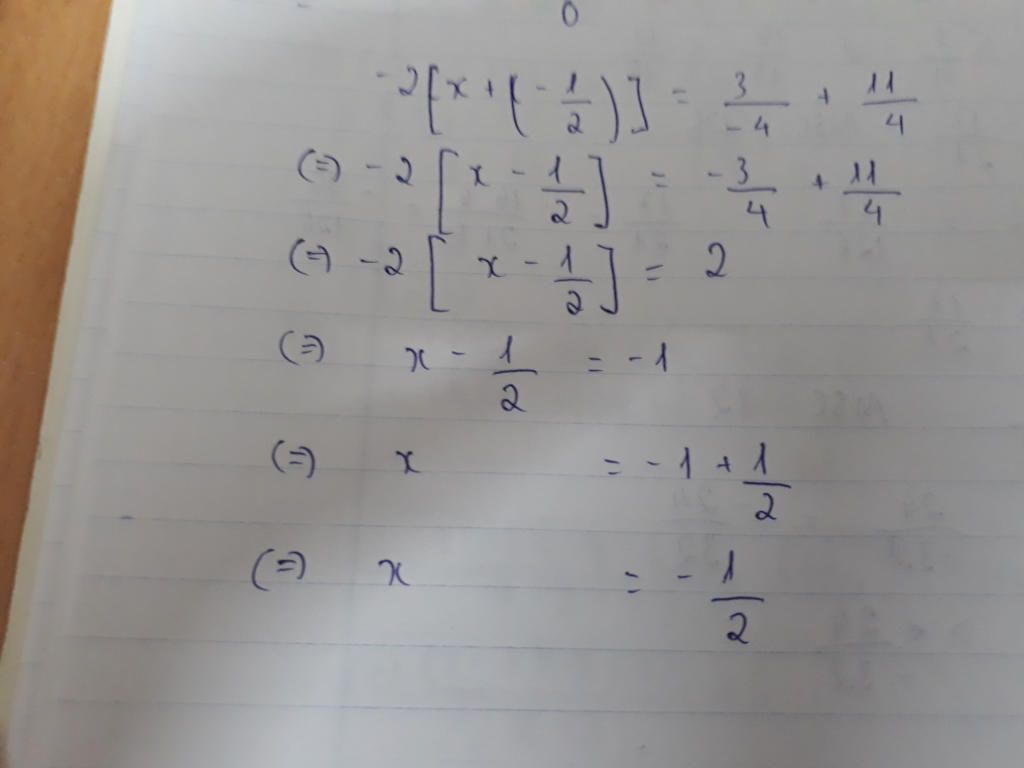 -2[x + (-1/2)] = 3/-4 + 11/4
(=) -2[x - 1/2] = -3/4 + 11/4
(=) -2[x - 1/2] = 2
(=) x - 1/2 = -1
(=) x = -1 + 1/2
(=) x = -1/2